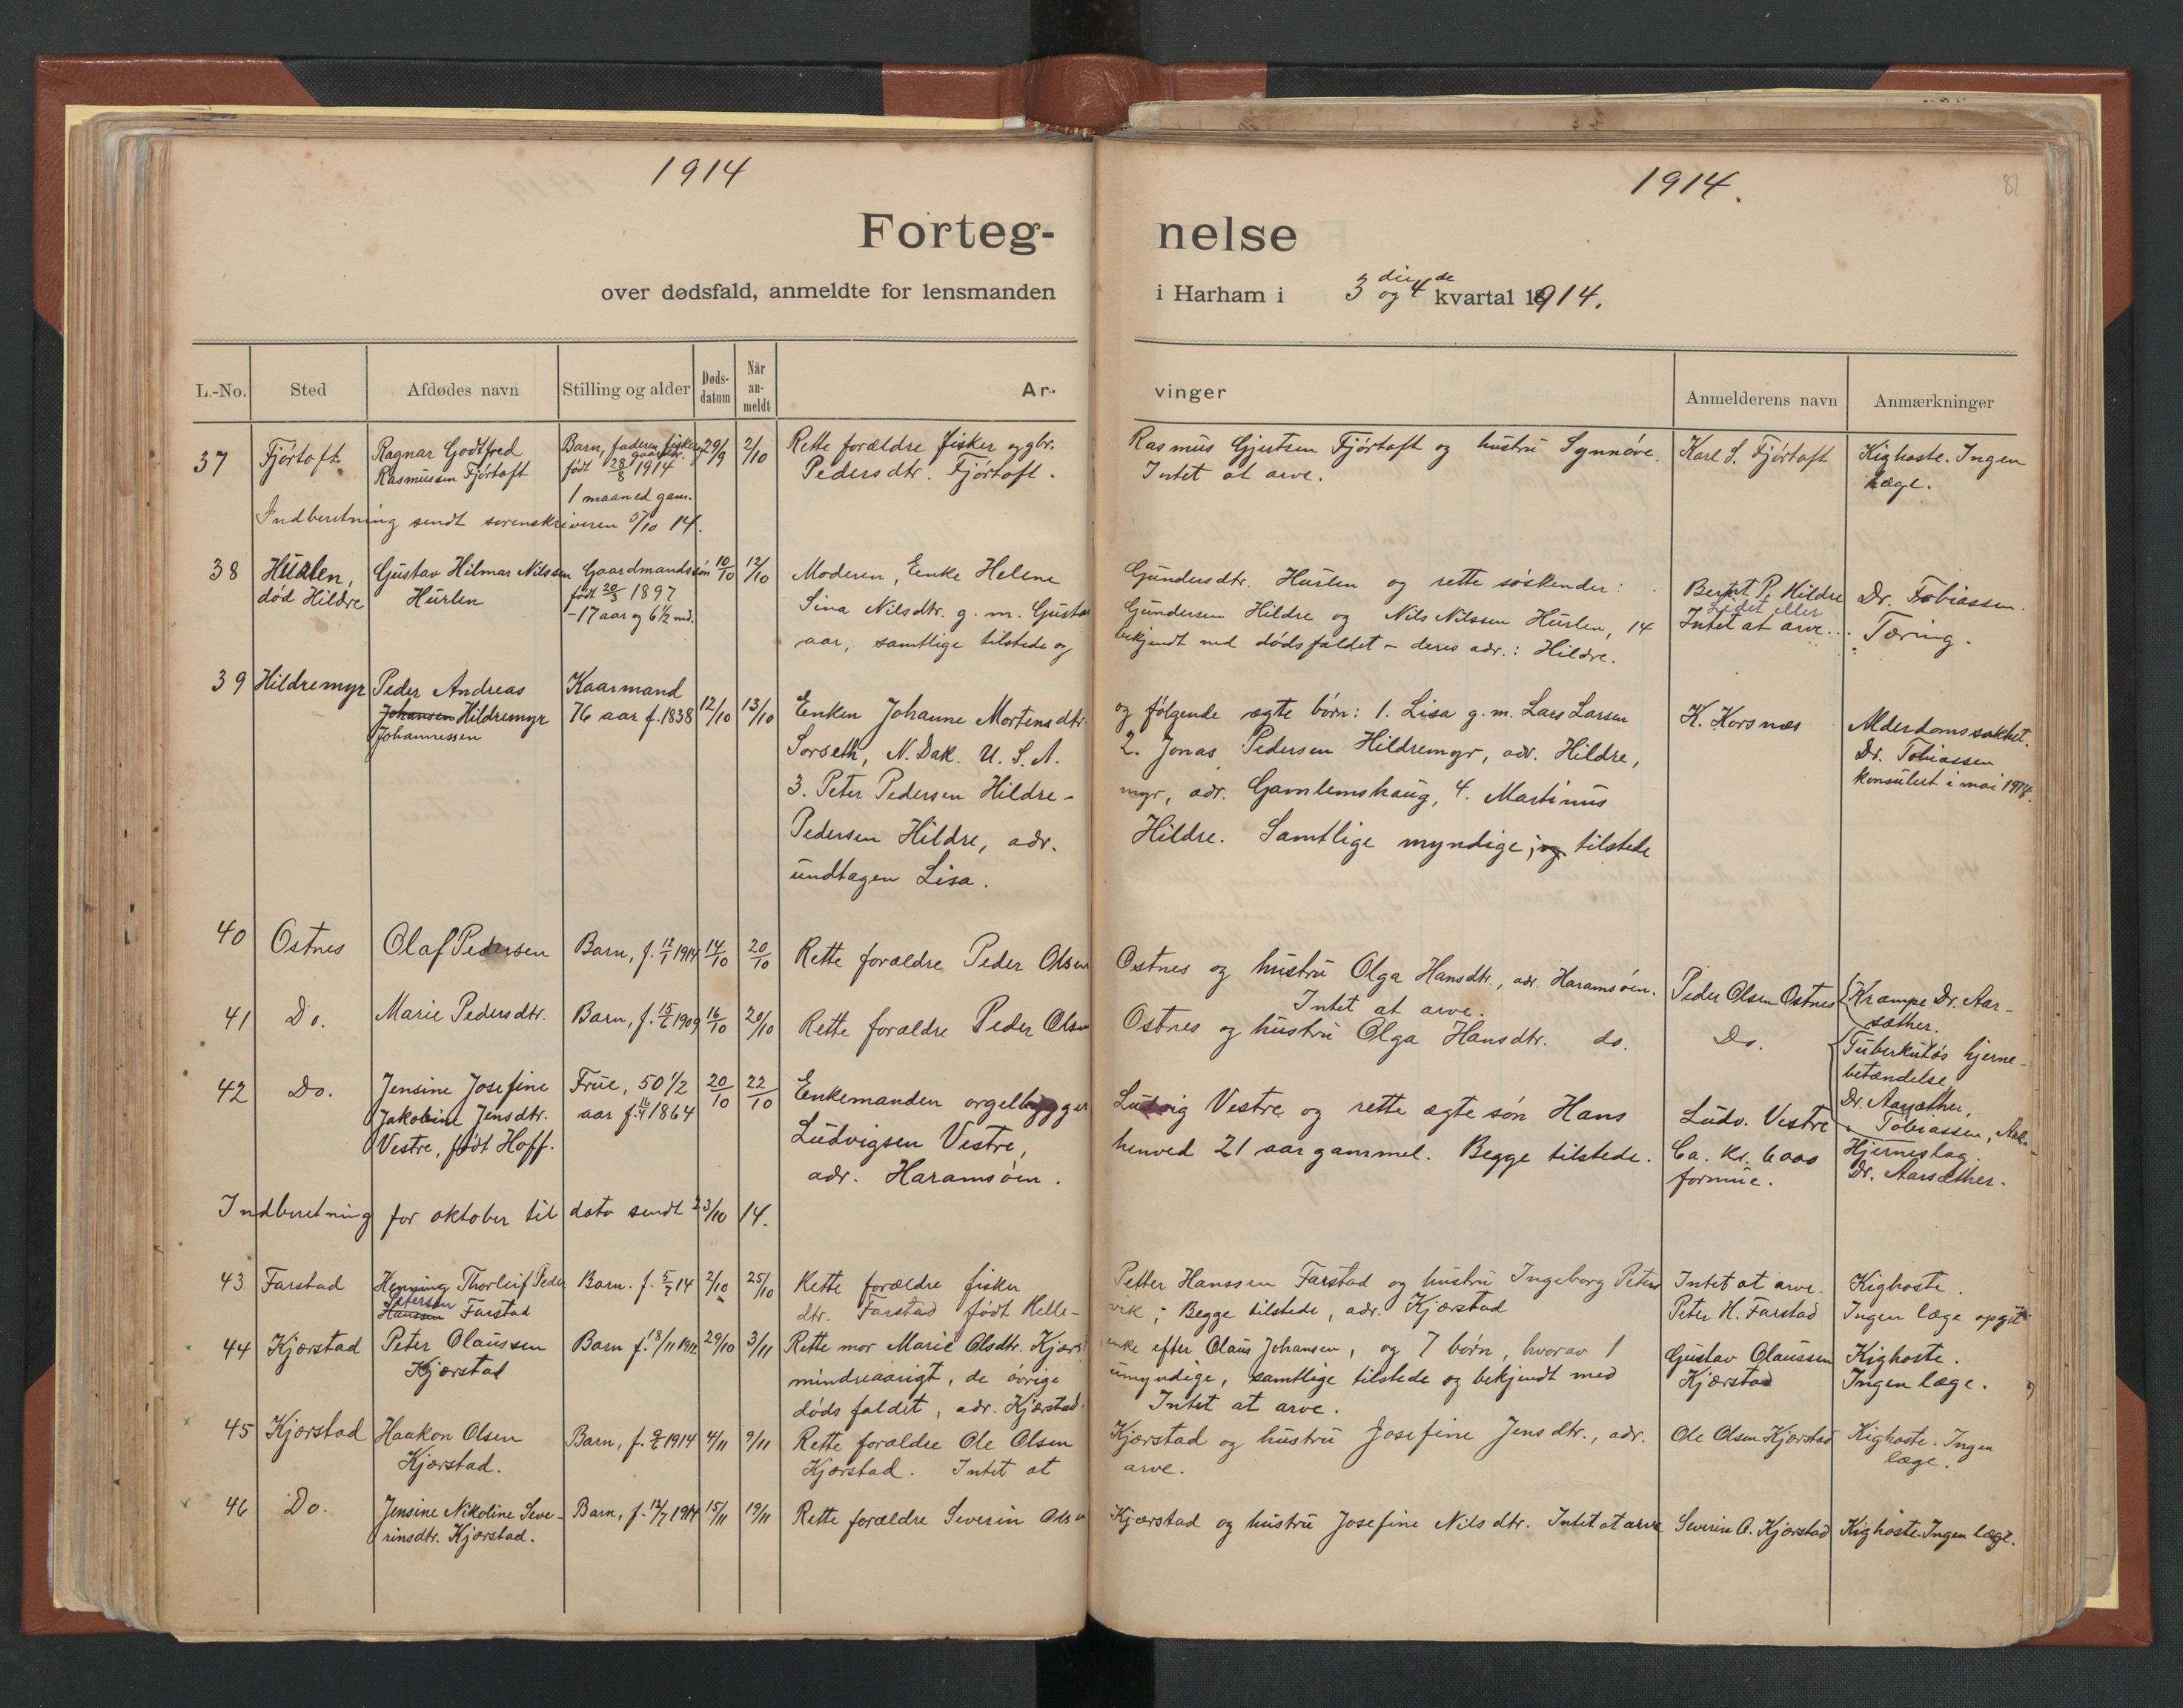 1914
1914.
82
Forteg-
nelse
over dødsfald, anmeldte for lensmanden
i Harham i 3die og 4de kvartal 1914.
L.-No. Sted Afdødes navn Stilling og alder Døds-datum Når an-meldt Ar- vinger Anmelderens navn Anmærkninger
37 Fjörtoft Ragnar Godtfred Barn, faderen fisker, gaardbr. 29/9 2/10 Rette forældre fisker og gbr. Rasmus Gjertsen Fjörtoft og hustru Synnöve Karl S. Fjörtoft Kighoste. Ingen
Rasmussen Fjörtoft født 28/8 1914 Pedersdtr. Fjörtoft. Intet at arve. læge.
1 maaned gam.
Indberetning sendt sorenskriveren 5/10 14.
38 Hurlen, Gustav Hilmar Nilssen Gaardmandssön 10/10 12/10 Moderen, Enke Helene Gundersdtr. Hurlen og rette söskender: Bernt P. Hildre Dr. Tobiassen.
död Hildre Hurlen født 20/3 1897 Sina Nilsdtr. g. m. Gustav Gundersen Hildre og Nils Nilssen Hurlen, 14 Lidet eller
-17 aar og 6½ md. aar, samtlige tilstede og bekjendt med dödsfaldet - deres adr.: Hildre. Intet at arve. Tæring.
39 Hildremyr Peder Andreas Kaarmand 12/10 13/10 Enken Johanne Mortensdtr. og følgende ægte börn: 1. Lisa g. m. Lars Larsen K. Korsnæs Alderdomssvakhet.
Johansen Hildremyr 76 aar f. 1838 Sorseth, N. Dak. U. S. A. 2. Jonas Pedersen Hildremyr, adr. Hildre, Dr. Tobiassen
Johannessen 3. Peter Pedersen Hildre- myr, adr. Gamlemshaug, 4. Martinus konsulert i mai 1914.
Pedersen Hildre, adr. Hildre. Samtlige myndige; og tilstede
undtagen Lisa.
40 Ostnes Olaf Pedersen Barn, f. 12/1 1914 14/10 20/10 Rette forældre Peder Olsen Ostnes og hustru Olga Hansdtr., adr. Haramsöen. Peder Olsen Ostnes Krampe Dr. Aar-
Intet at arve. sæther.
41 Do. Marie Pedersdtr. Barn, f. 15/6 1909 16/10 20/10 Rette forældre Peder Olsen Ostnes og hustru Olga Hansdtr. do. Do. Tuberkulös hjerne-
betændelse
42 Do. Jensine Josefine Frue, 50 1/2 20/10 22/10 Enkemanden orgelbygger Ludvig Vestre og rette ægte sön Hans Ludv. Vestre Dr. Aarsæther,
Jakobine Jensdtr. aar f. 1864 Ludvigsen Vestre, henved 21 aar gammel. Begge tilstede. Ca. kr. 6000 Tobiassen,
Vestre, født Hoff. adr. Haramsöen. formue. Hjerneslag.
Dr. Aarsæther.
Indberetning for oktober til dato sendt 23/10 14.
43 Farstad Henning Thorleif Peder Barn. f. 5/7 14 2/10 25/10 Rette forældre fisker Petter Hanssen Farstad og hustru Ingeborg Peters Intet at arve. Kighoste.
Petersen
Hanssen Farstad dtr. Farstad født Helle- vik; Begge tilstede, adr. Kjærstad Peter H. Farstad Ingen læge opgit
44 Kjærstad Peter Olaussen Barn f. 18/11 1912 29/10 3/11 Rette mor Marie Olsdtr. Kjærs enke efter Olaus Johansen, og 7 börn, hvorav 1 Gustav Olaussen Kighoste.
Kjærstad mindreaarigt, de övrige umyndige, samtlige tilstede og bekjendt med Kjærstad Ingen læge.
dödsfaldet, adr. Kjærstad. Intet at arve.
45 Kjærstad Haakon Olsen Barn, f. 9/6 1914 4/11 9/11 Rette forældre Ole Olsen Kjærstad og hustru Josefine Jensdtr., adr. Ole Olsen Kjærstad Kighoste. Ingen
Kjærstad. Kjærstad. Intet at arve. læge.
46 Do. Jensine Nikoline Seve- Barn, f. 12/7 1914 15/11 19/11 Rette forældre Severin Olsen Kjærstad og hustru Josefine Nilsdtr. Intet at arve Severin O. Kjærstad Kighoste Ingen læge.
rinsdtr. Kjærstad.